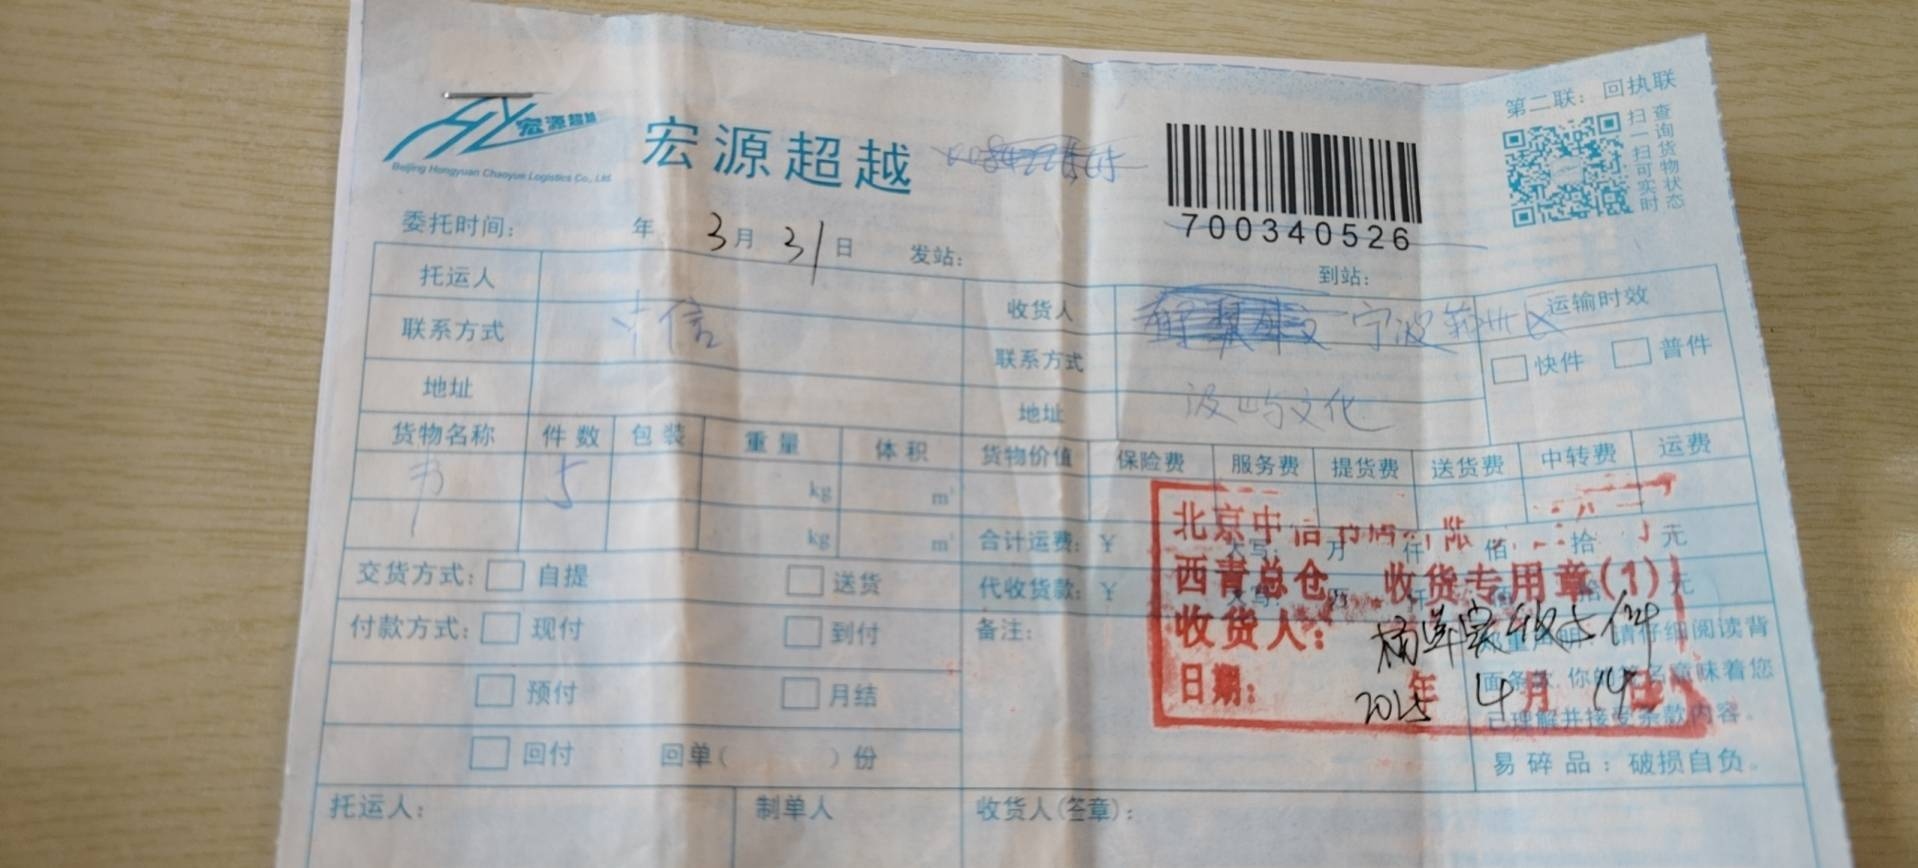 第二联：回执联
宏源超越
Beijing Hongyuan Chaoyue Logistics Co., Ltd.
宏源超越
700340526
查询货物状态
扫一扫可实时
委托时间： 年 3月 31日 发站： 到站：
托运人 收货人 运输时效
联系方式 中信 宁波 区
联系方式 快件 普件
地址 地址 文化
货物名称 件数 包装 重量 体积 货物价值 保险费 服务费 提货费 送货费 中转费 运费
书 5 kg m³
kg m³ 合计运费：￥ 大写： 万 仟 佰 拾 元
交货方式： 自提 送货 代收货款：￥ 大写： 万 仟 佰 拾 元
付款方式： 现付 到付 备注：
预付 月结
回付 回单（ ）份
北京中信
西青总仓 收货专用章(1)
收货人： 收5件
日期： 2025年4月14日
郑重声明：请仔细阅读背
面条款，你的签名意味着您
已理解并接受条款内容。
易碎品：破损自负。
托运人： 制单人 收货人(签章)：